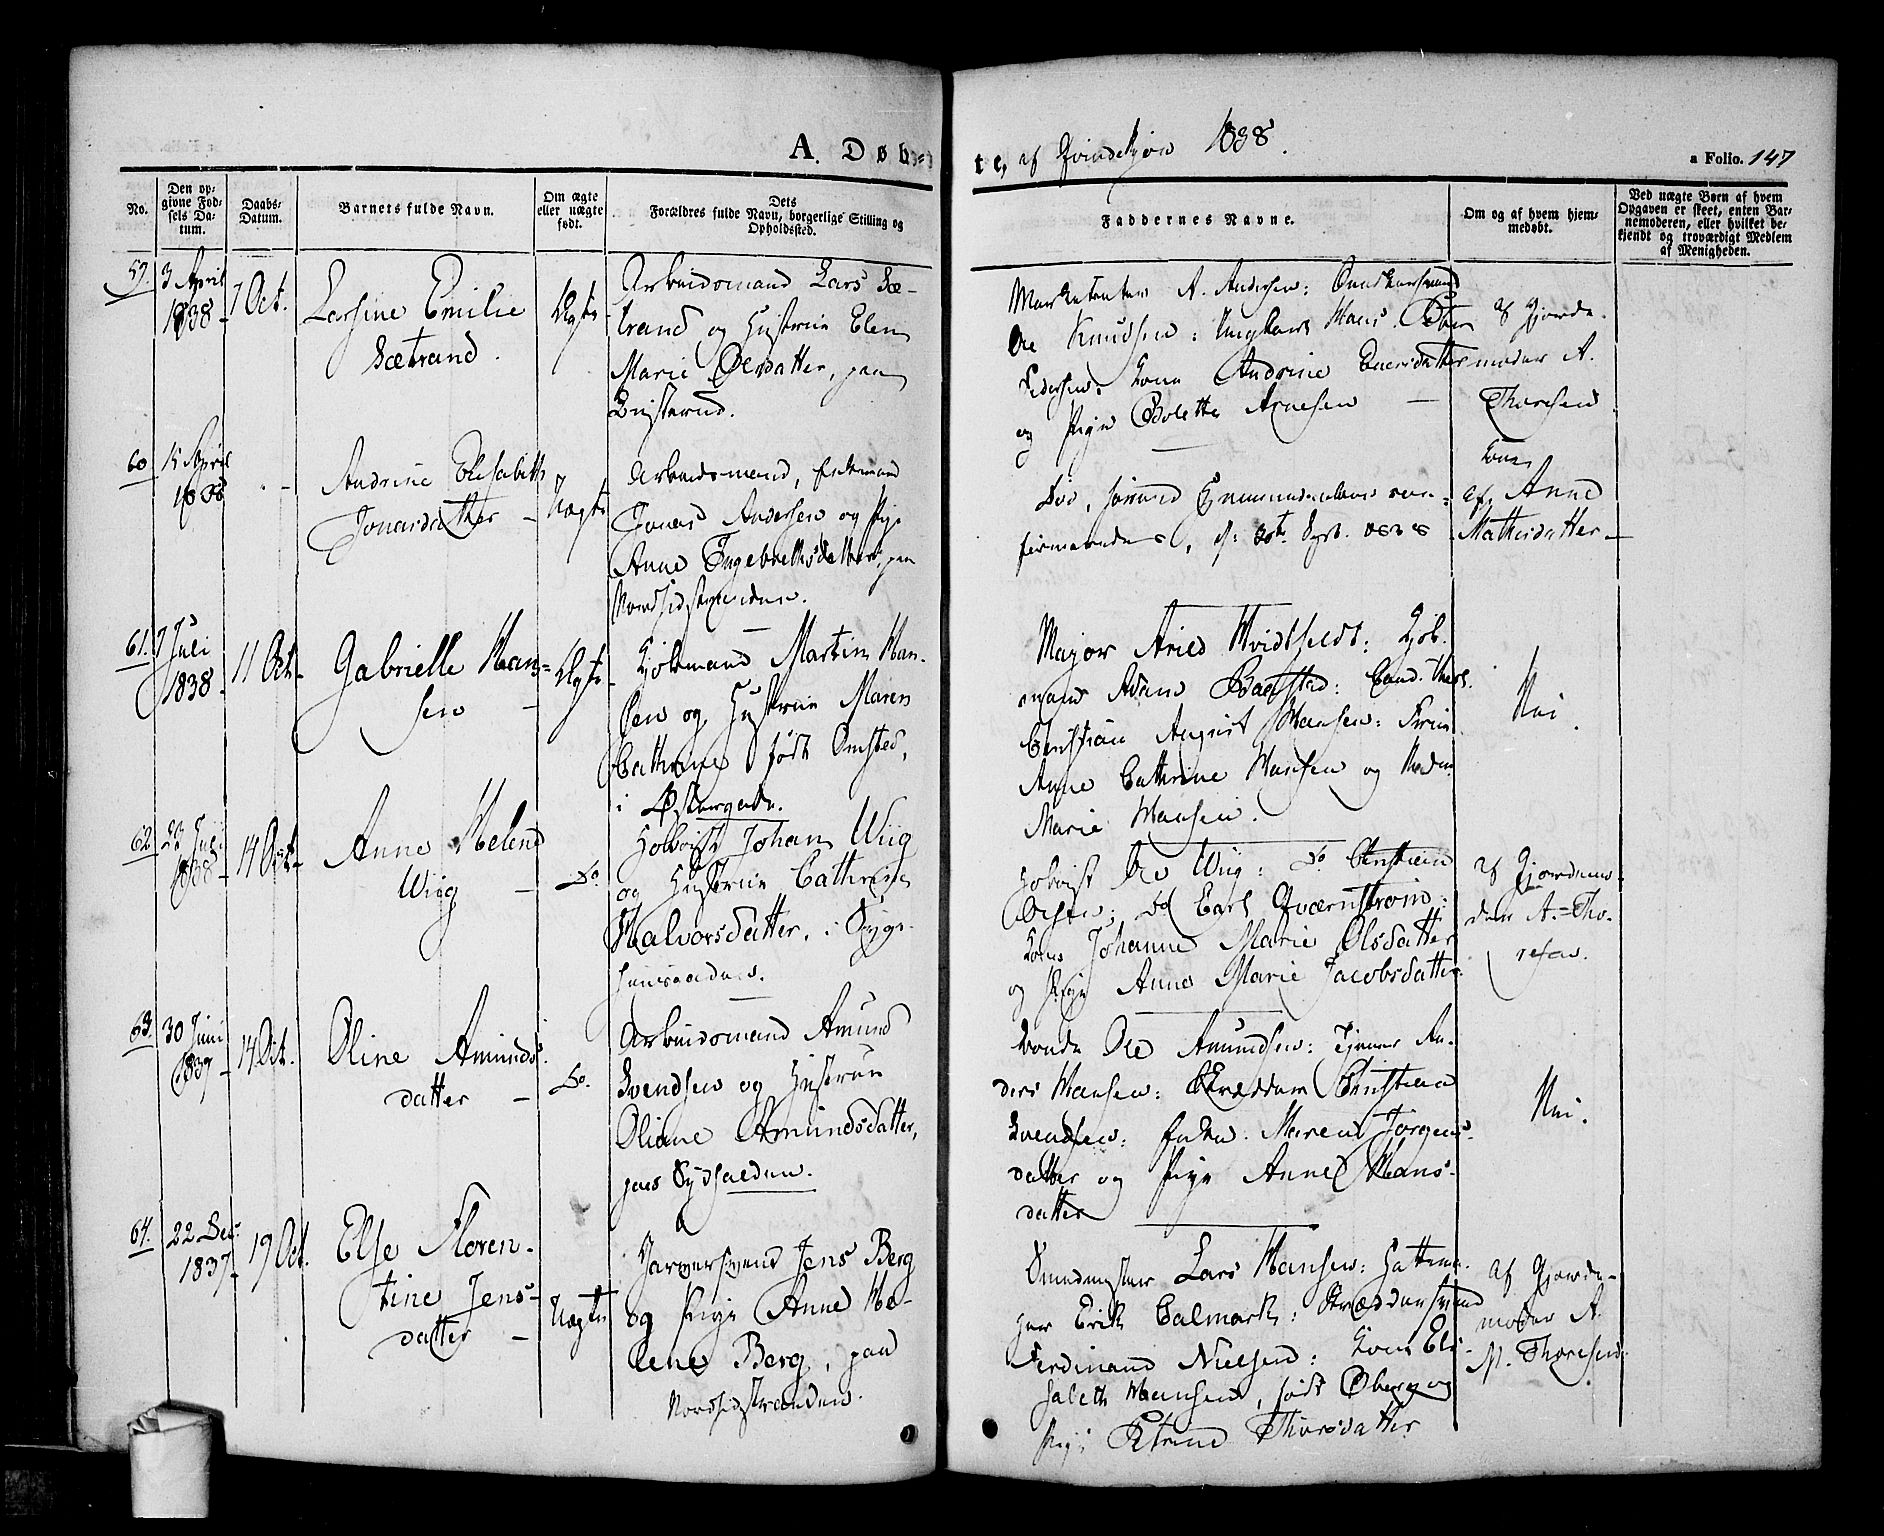 A. Døb=
te, af Qvindekjøn 1838.
a Folio. 147
No.
Den op-
givne Fød-
sels Da-
tum.
Daabs-
Datum.
Barnets fulde Navn.
Om ægte
eller uægte
født.
Dets
Forældres fulde Navn, borgerlige Stilling og
Opholdssted.
Faddernes Navne.
Om og af hvem hjem-
medøbt.
Ved uægte Børn af hvem
Opgaven er skeet, enten Bar-
nemoderen, eller hvilket be-
kjendt og troværdigt Medlem
af Menigheden.
59. 3 April
1838- 7 Oct.
Larsine Emilie
Sætrand.
Ægte
Arbeidsmand Lars Sæ-
trand og Hustrue Elen
Marie Olsdatter, paa
A. Andersen:
Ole Knudsen: Ungkarl Hans Peter
Pedersen: Kone Andrine Evensdatter
og Pige Bolette Arnesen —
af Gjorde-
moder A.
Thoresen
60 15 April
1838
Andrine Elisabeth
Jonasdatter —
Uægte
Arbeidsmand, Enkemand
Jonas Andersen og Pige
Anne Ingebrethsdatter, paa
Nordsidstranden.
Død, forinden
1838
af Anne
Mathisdatter —
61. 7 Juli
1838- 11 Oct.
Gabrielle Han=
sen —
Ægte
Kjøbmand Martin Han-
sen og Hustrue Maren
Cathrine født Omsted,
i Østergade.
Major Arild Hvidtfeldt: Kjøb-
mand Adam Baastad: Cand. Theol.
Christian August Hansen: Frue
Anne Cathrine Hansen og Madm.
Marie Hansen.
Nei.
62 23 Juli
1838 14 Oct.
Anne Helene
Wiig —
Do.
Johan Wiig
og Hustrue Cathrine
Halvorsdatter, i
Ole Wiig: Do Christian
Olsen: Do Carl Qværnstrøm:
Kone Johanne Marie Olsdatter
og Pige Anne Marie Jacobsdatter
af Gjordemo-
der A. Tho-
resen.
63. 30 Juni
1837- 14 Oct.
Oline Amunds-
datter —
Do.
Arbeidsmand Amund
Svendsen og Hustrue
Oliane Amundsdatter,
paa Sydhalden.
Bonde Ole Amundsen: Tjener An-
ders Hansen: Skrædder Christian
Svendsen: Enke Maren Jörgens-
datter og Pige Anne Hans-
datter
Nei.
64. 22 Dec.
1837- 19 Oct.
Else Floren-
tine Jens-
datter —
Uægte
Garversvend Jens Berg
og Pige Anne He-
lene Berg, paa
Nordsidstranden.
Smedmester Lars Hansen: Hattema-
ger Erik Calmark: Skræddersvend
Ferdinand Nielsen: Kone Eli-
sabeth Hansen, født Øberg og
Pige Petrine Thorsdatter
af Gjorde-
moder A.
M. Thoresen.